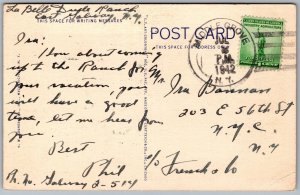 La Belle Doyle Ranch,
East Galway N.Y.
THIS SPACE FOR WRITING MESSAGES
POST CARD
THIS SPACE FOR ADDRESS ONLY
GROVE
P.M.
1942
N.Y.
Ira:
How about coming
up to the Ranch for
your vacation, you
will have a good
time, let me hear from
you.
Best
Phil
Ph. No. Galway 2-514
Mr. Ira Bannan
203 E 56th St
N.Y.C.
N.Y
c/o French &amp; Co